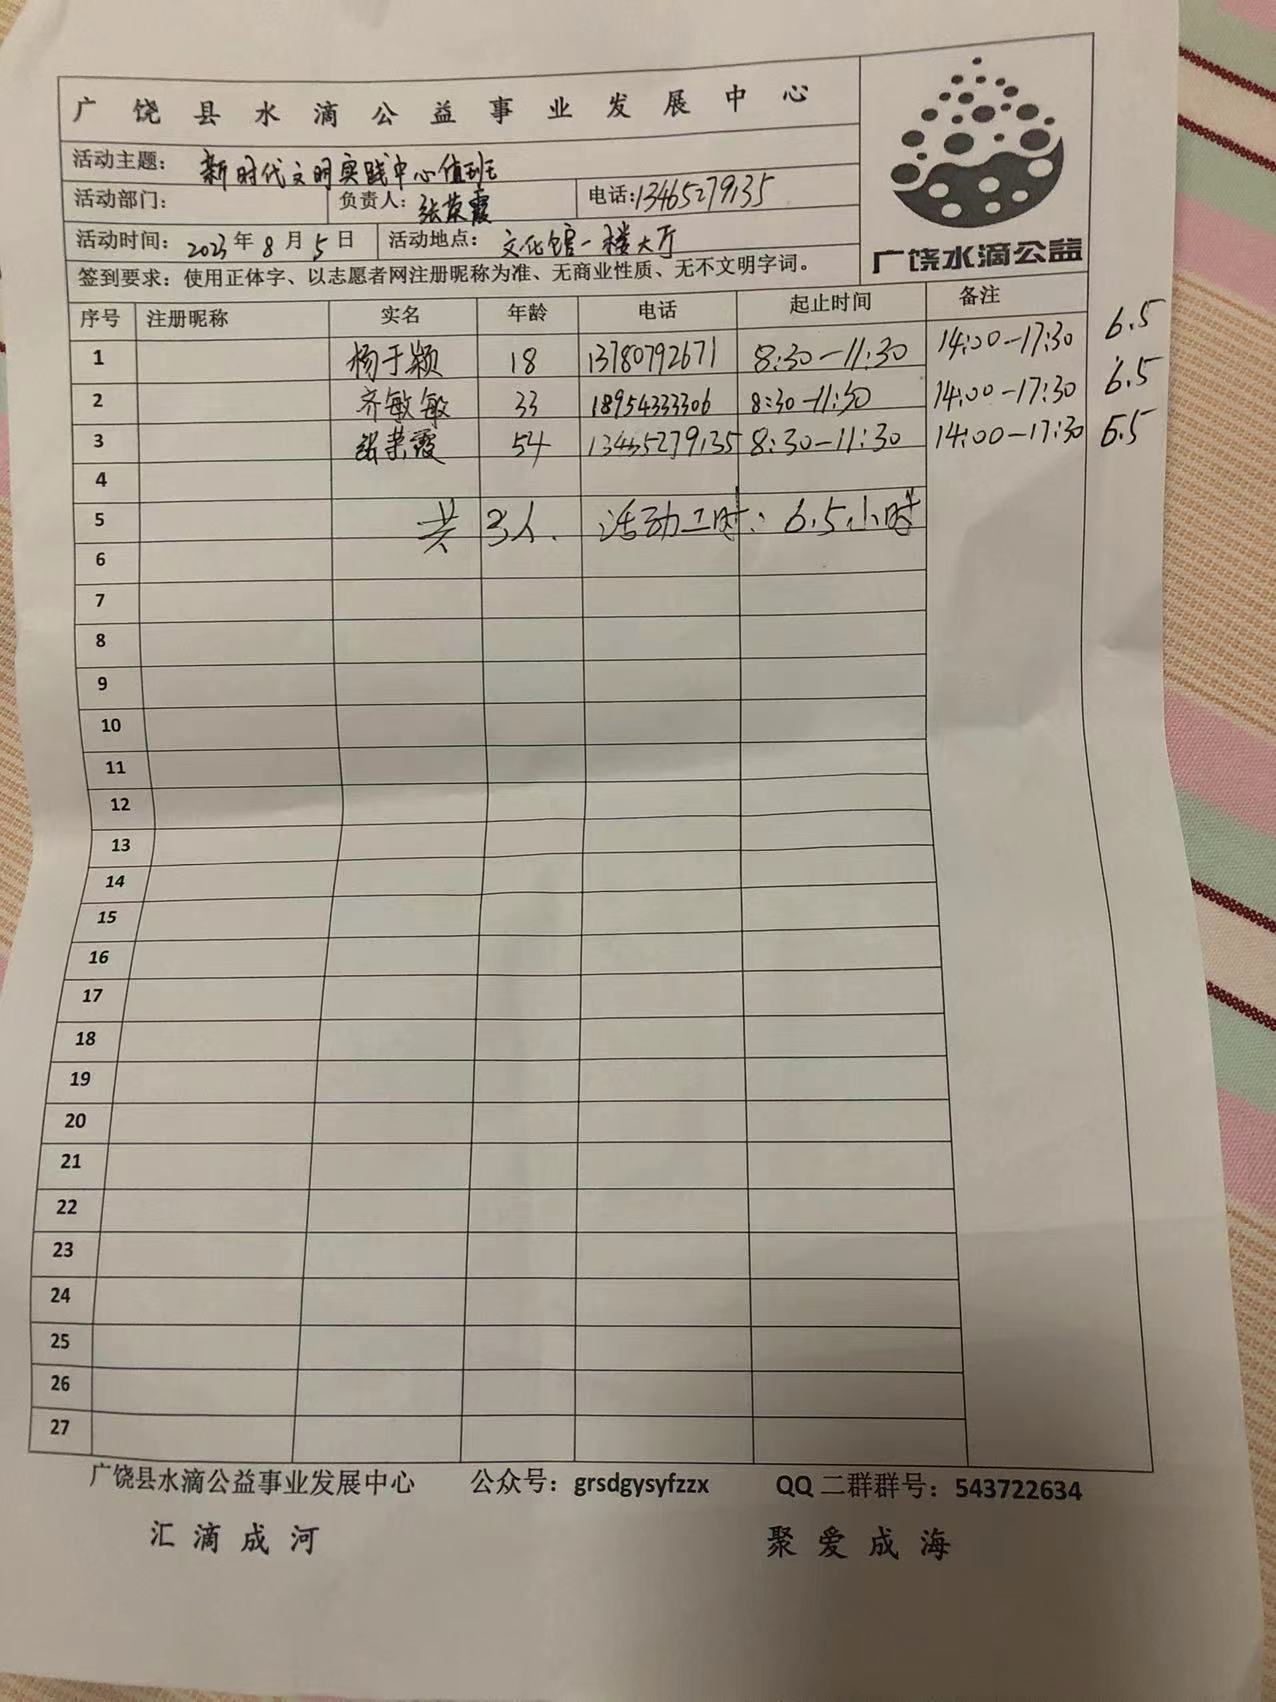 广饶县水滴公益事业发展中心
活动主题：新时代文明实践中心值班
活动部门： 负责人：张荣霞 电话:13465279135
活动时间：2023年8月5日 活动地点：文化馆一楼大厅
广饶水滴公益
签到要求：使用正体字、以志愿者网注册昵称为准、无商业性质、无不文明字词。
序号 注册昵称 实名 年龄 电话 起止时间 备注
1 杨于颖 18 13780792671 8:30-11:30 14:00-17:30 6.5
2 齐敏敏 33 18954333306 8:30-11:30 14:00-17:30 6.5
3 张荣霞 54 13465279135 8:30-11:30 14:00-17:30 6.5
4
5 共3人. 活动工时：6.5小时
6
7
8
9
10
11
12
13
14
15
16
17
18
19
20
21
22
23
24
25
26
27
广饶县水滴公益事业发展中心 公众号：grsdgysyfzzx QQ二群群号：543722634
汇滴成河 聚爱成海